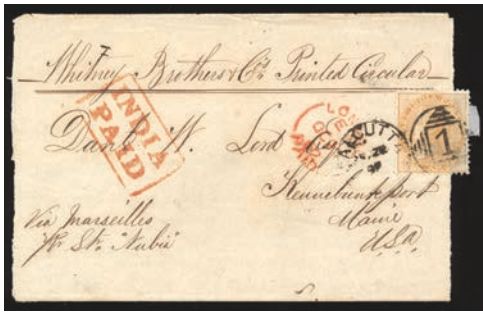 7
Whitney Brothers & Co's Printed Circular
INDIA
PAID
LO
PAID
CALCUTTA
1
Danl W. Lord Esq
Kennebunk port
Maine
U.S.A.
Via Marseilles
Pr Str. "Nubia"